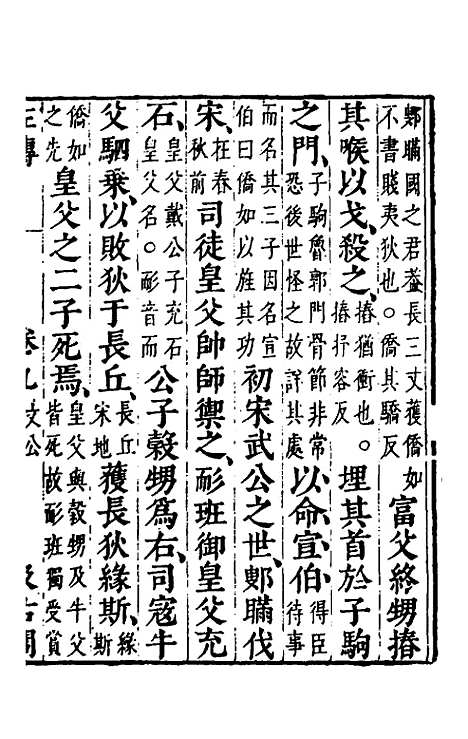 鄋瞞國之君蓋長三丈獲僑如不書賤夷狄也。僑其驕反富父終甥摏
其喉以戈、殺之、摏猶衝也。摏抒容反埋其首於子駒
之門、子駒魯郭門骨節非常恐後世怪之故詳其處以命宣伯、得臣待事
而名其三子因名宣伯曰僑如以旌其功初宋武公之世、鄋瞞伐
宋、在春秋前司徒皇父帥師禦之、耏班御皇父充
石、皇父戴公子充石皇父名。耏音而公子穀甥為右、司寇牛
父駟乘、以敗狄于長丘、長丘宋地獲長狄緣斯、緣斯
僑如之先皇父之二子死焉、皇父與穀甥及牛父皆死故耏班獨受賞
左傳 卷九 文公